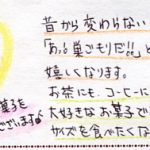 昔から変わらない
「あっ!巣ごもりだ!!」と
嬉しくなります。
お茶にも、コーヒーに
大好きなお菓子で
サイズを食べたくな
菓子を
ございます♪